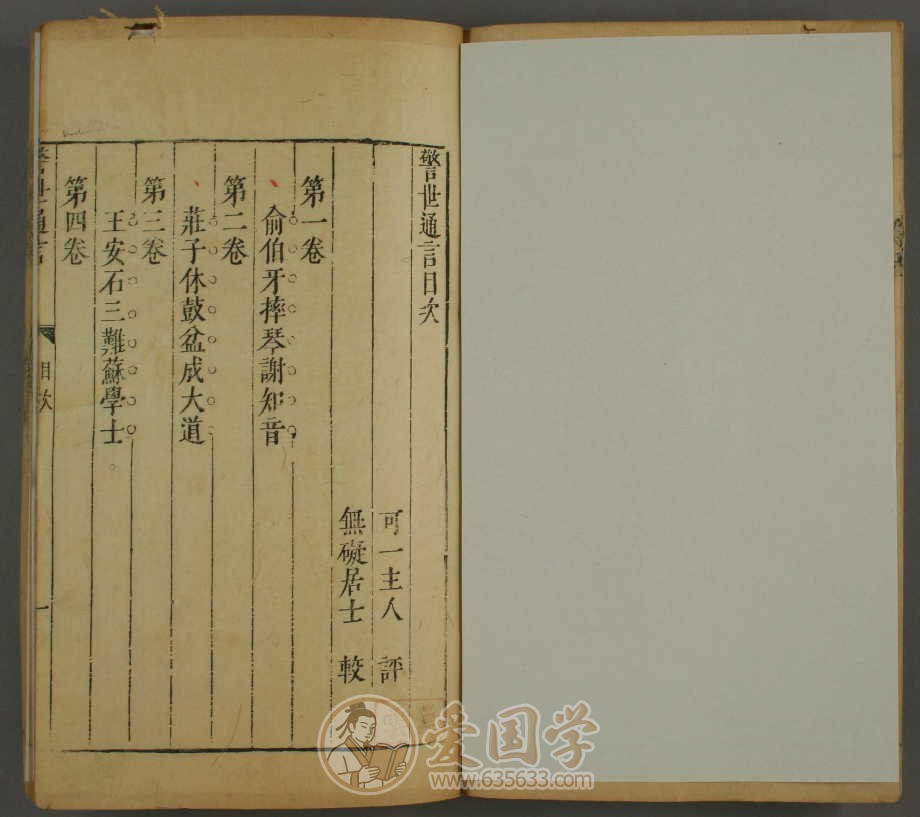 警世通言目次
可一主人 評
無礙居士 較
第一卷
俞伯牙摔琴謝知音
第二卷
莊子休鼓盆成大道
第三卷
王安石三難蘇學士
第四卷
警世通言 目次 一
爱国学
www.635633.com